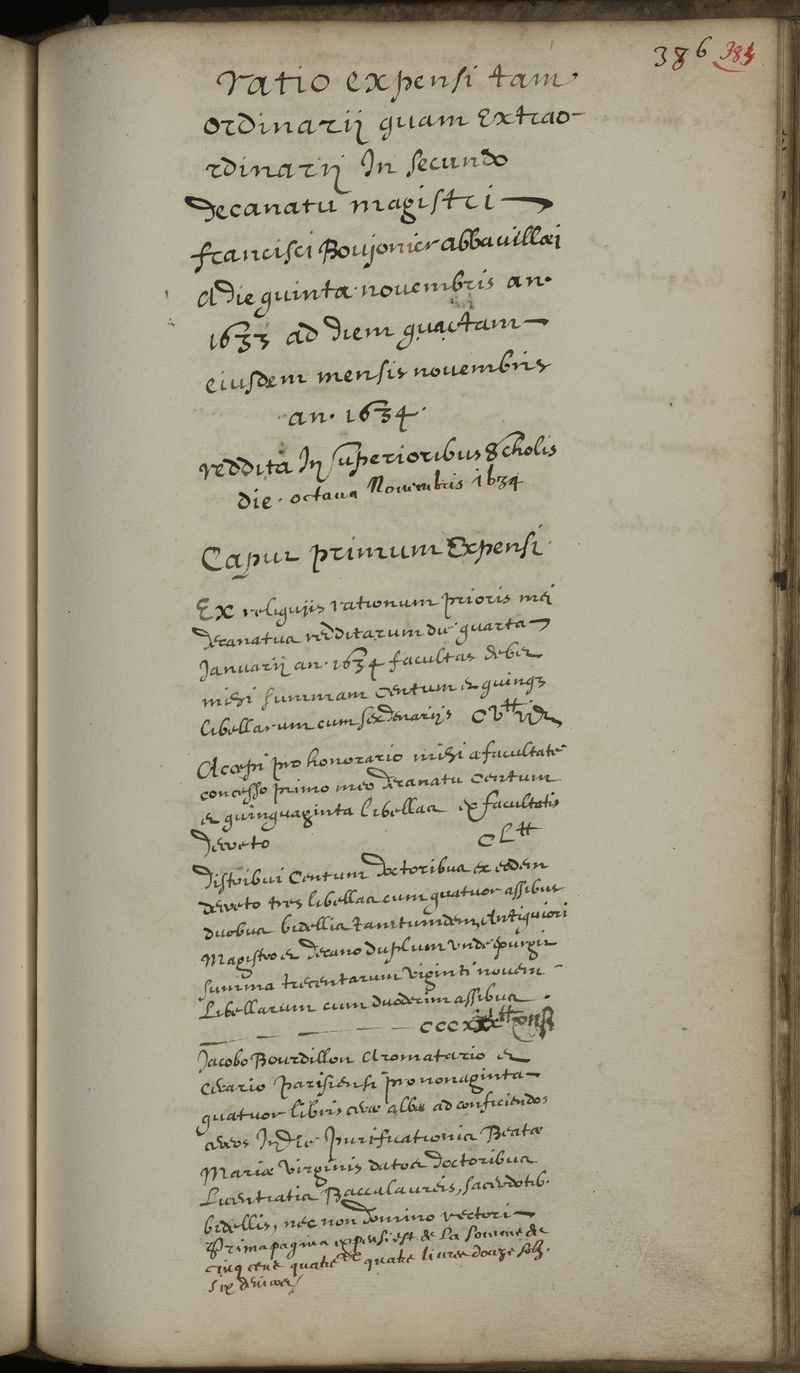 386 384
ratio expensi tam
ordinarij quam Extrao-
rdinarij In secundo
decanatu magistri
francisci Boujonier abbauillæi
A die quinta nouembris an.
1633 ad diem quartam
eiusdem mensis nouembris
an. 1634.
reddita In superioribus scholis
die octaua Nouembris 1634
Caput primum Expensi
Ex reliquijs rationum prioris mei
decanatus redditarum die quarta
Januarij an. 1634 facultas debet
mihi summam centum et quinqz
libellarum cum sex denarijs
Accepi pro honorario mihi a facultate
concesso primo meo decanatu centum
et quinquaginta libellas ex facultatis
decreto CL
distribui Centum doctoribus ex eodem
decreto tres libellas cum quatuor assibus
duobus bidellis tantumdem, Antiquiori
Magistro et decano duplum vnde
summa trecentarum viginti nouem
Libellarum cum duodecim assibus
Jacobo Bourdillon Aromatario et
Cerario parisiensi pro nonaginta
quatuor libris ceræ albæ ad conficiendos
cereos In die purificationis Beatæ
Mariæ Virginis datos doctoribus
Licentiatis Baccalaureis, sacerdotib.
bidellis, nec non domino rectori
Prima pagina expensi est de La somme de
cinq cent quatre quatre liures douze solz.
six deniers